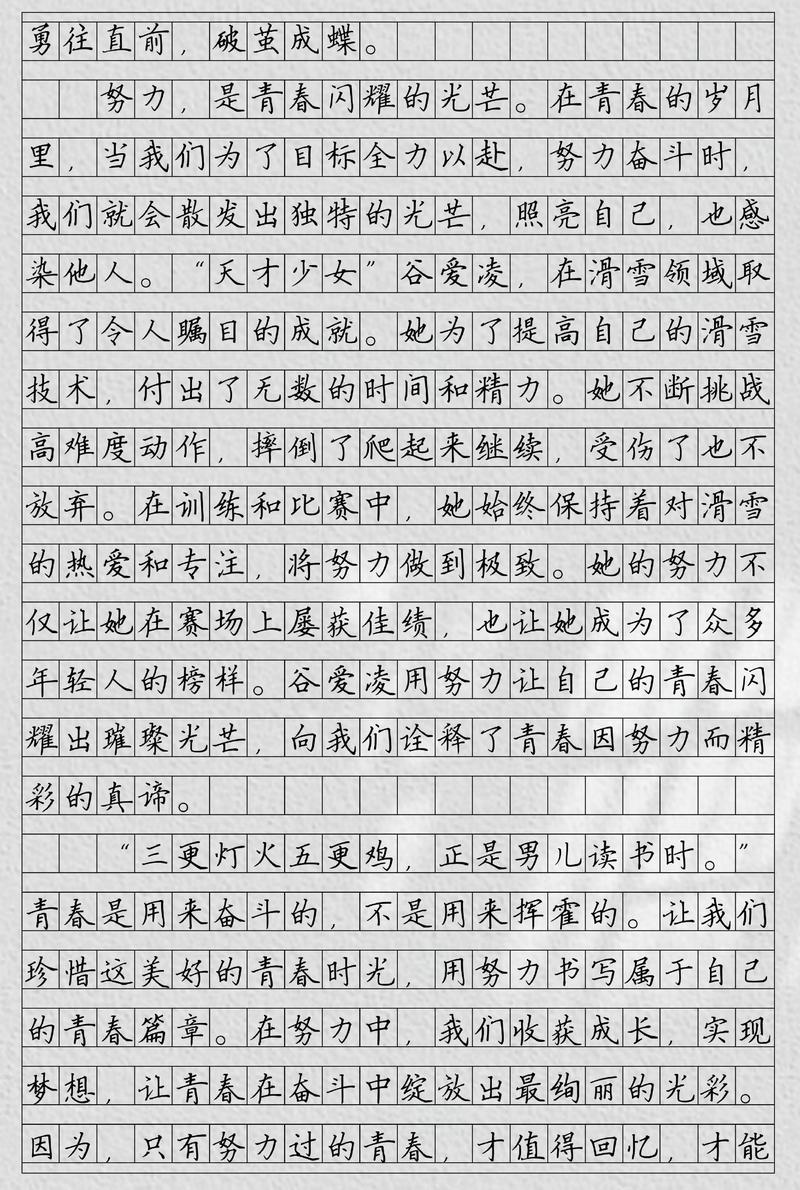 勇往直前，破茧成蝶。
努力，是青春闪耀的光芒。在青春的岁月
里，当我们为了目标全力以赴，努力奋斗时，
我们就会散发出独特的光芒，照亮自己，也感
染他人。“天才少女”谷爱凌，在滑雪领域取
得了令人瞩目的成就。她为了提高自己的滑雪
技术，付出了无数的时间和精力。她不断挑战
高难度动作，摔倒了爬起来继续，受伤了也不
放弃。在训练和比赛中，她始终保持着对滑雪
的热爱和专注，将努力做到极致。她的努力不
仅让她在赛场上屡获佳绩，也让她成为了众多
年轻人的榜样。谷爱凌用努力让自己的青春闪
耀出璀璨光芒，向我们诠释了青春因努力而精
彩的真谛。
“三更灯火五更鸡，正是男儿读书时。”
青春是用来奋斗的，不是用来挥霍的。让我们
珍惜这美好的青春时光，用努力书写属于自己
的青春篇章。在努力中，我们收获成长，实现
梦想，让青春在奋斗中绽放出最绚丽的光彩。
因为，只有努力过的青春，才值得回忆，才能